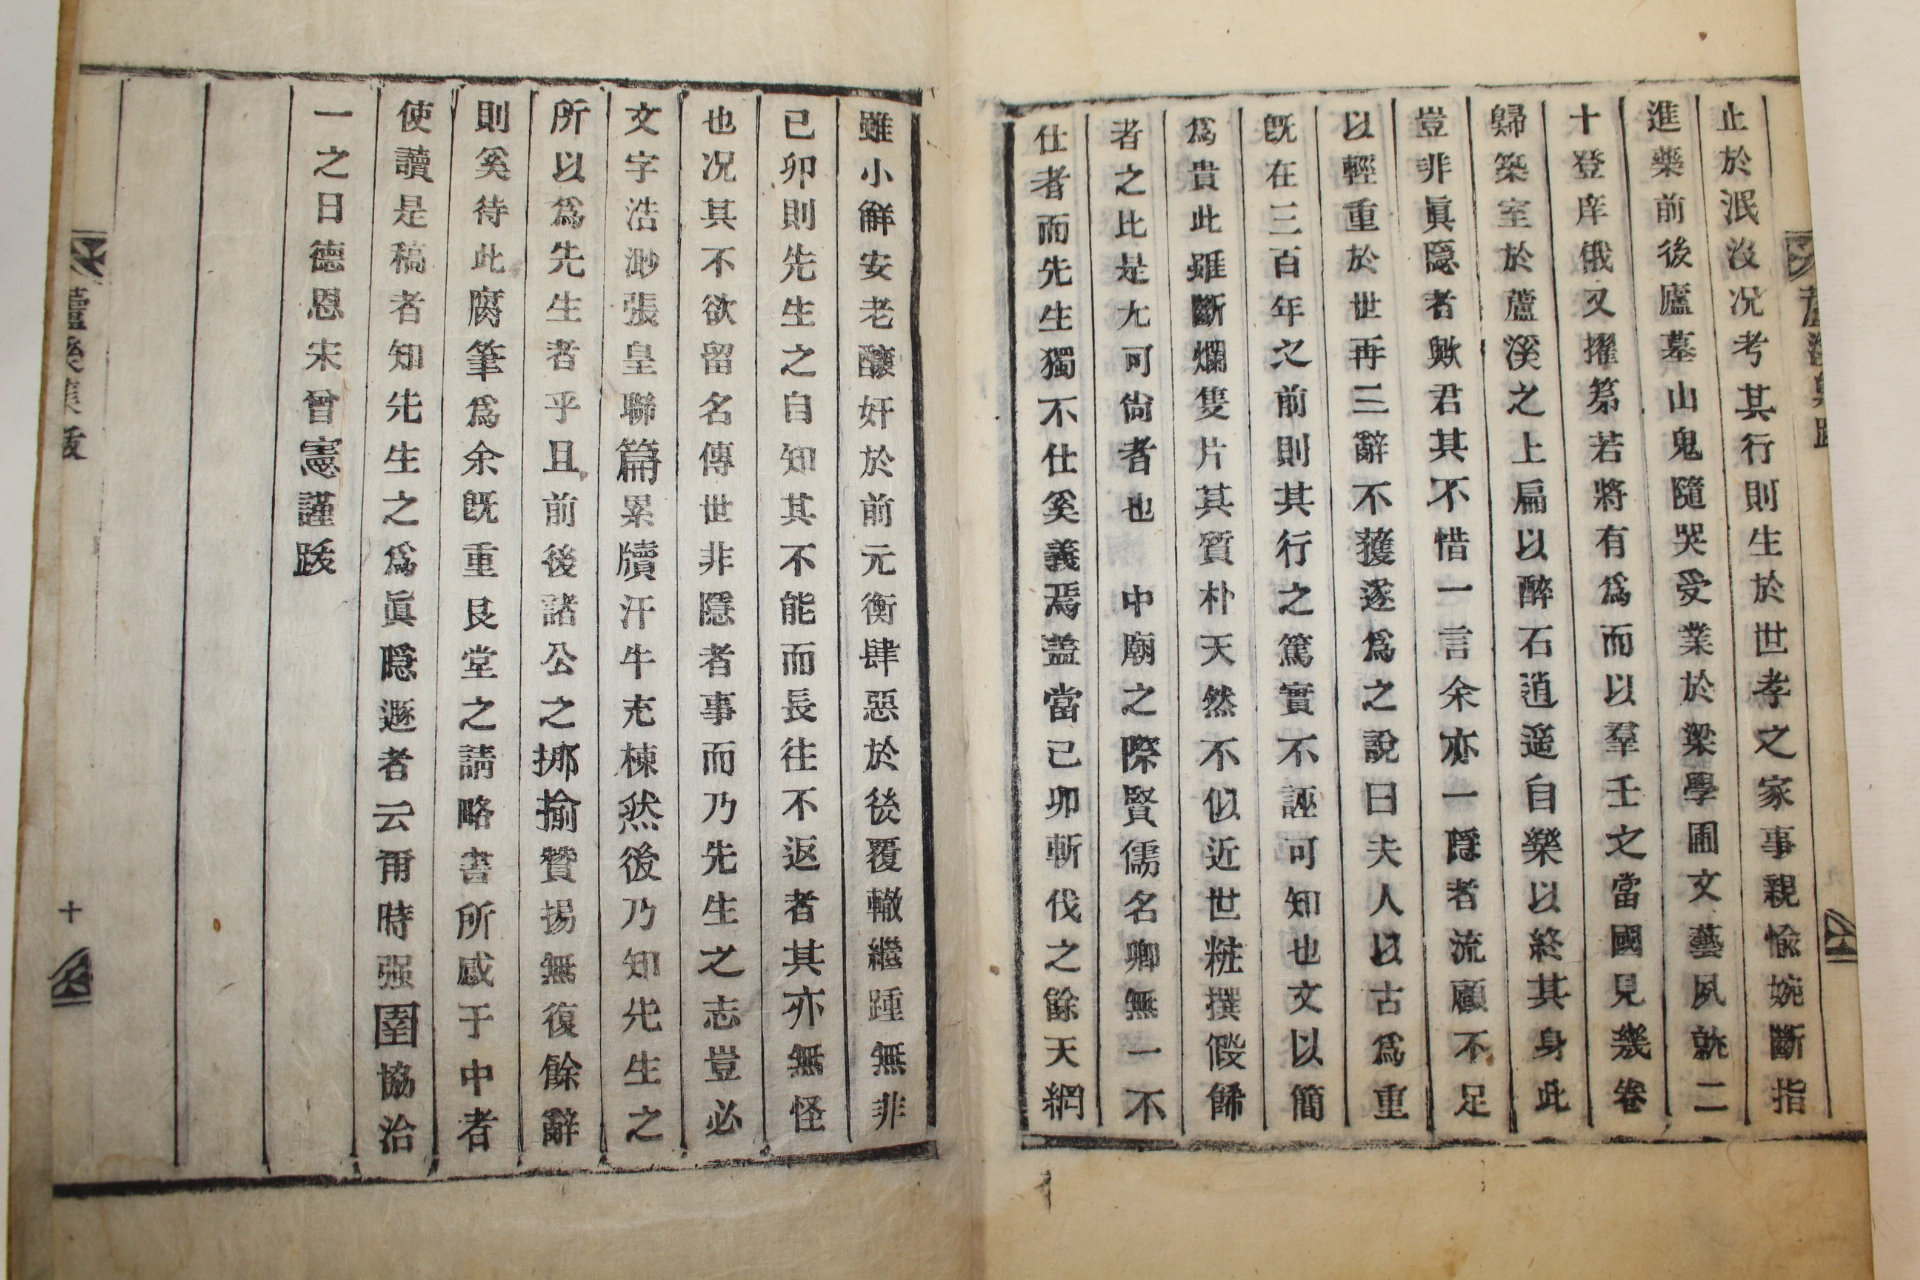 止於泯沒况考其行則生於世孝之家事親愉婉斷指
進藥前後廬墓山鬼隨哭受業於梁學圃文藝夙就二
十登庠俄又擢第若將有爲而以羣壬之當國見幾卷
歸築室於蘆溪之上扁以醉石逍遥自樂以終其身此
豈非眞隱者歟君其不惜一言余亦一隱者流顧不足
以輕重於世再三辭不獲遂爲之說曰夫人以古爲重
旣在三百年之前則其行之篤實不誣可知也文以簡
爲貴此雖斷爛隻片其質朴天然不似近世粧撰假餙
者之比是尤可尙者也 中廟之際賢儒名卿無一不
仕者而先生獨不仕奚義焉盖當己卯斬伐之餘天網
雖小觧安老釀奸於前元衡肆惡於後覆轍繼踵無非
己卯則先生之自知其不能而長往不返者其亦無怪
也况其不欲留名傳世非隱者事而乃先生之志豈必
文字浩渺張皇聯篇累牘汗牛充棟然後乃知先生之
所以爲先生者乎且前後諸公之揶揄贊揚無復餘辭
則奚待此腐筆爲余旣重艮堂之請略書所感于中者
使讀是稿者知先生之爲眞隱遯者云甭時强圉協洽
一之日德恩宋曾憲謹跋
蘆溪集 跋
十